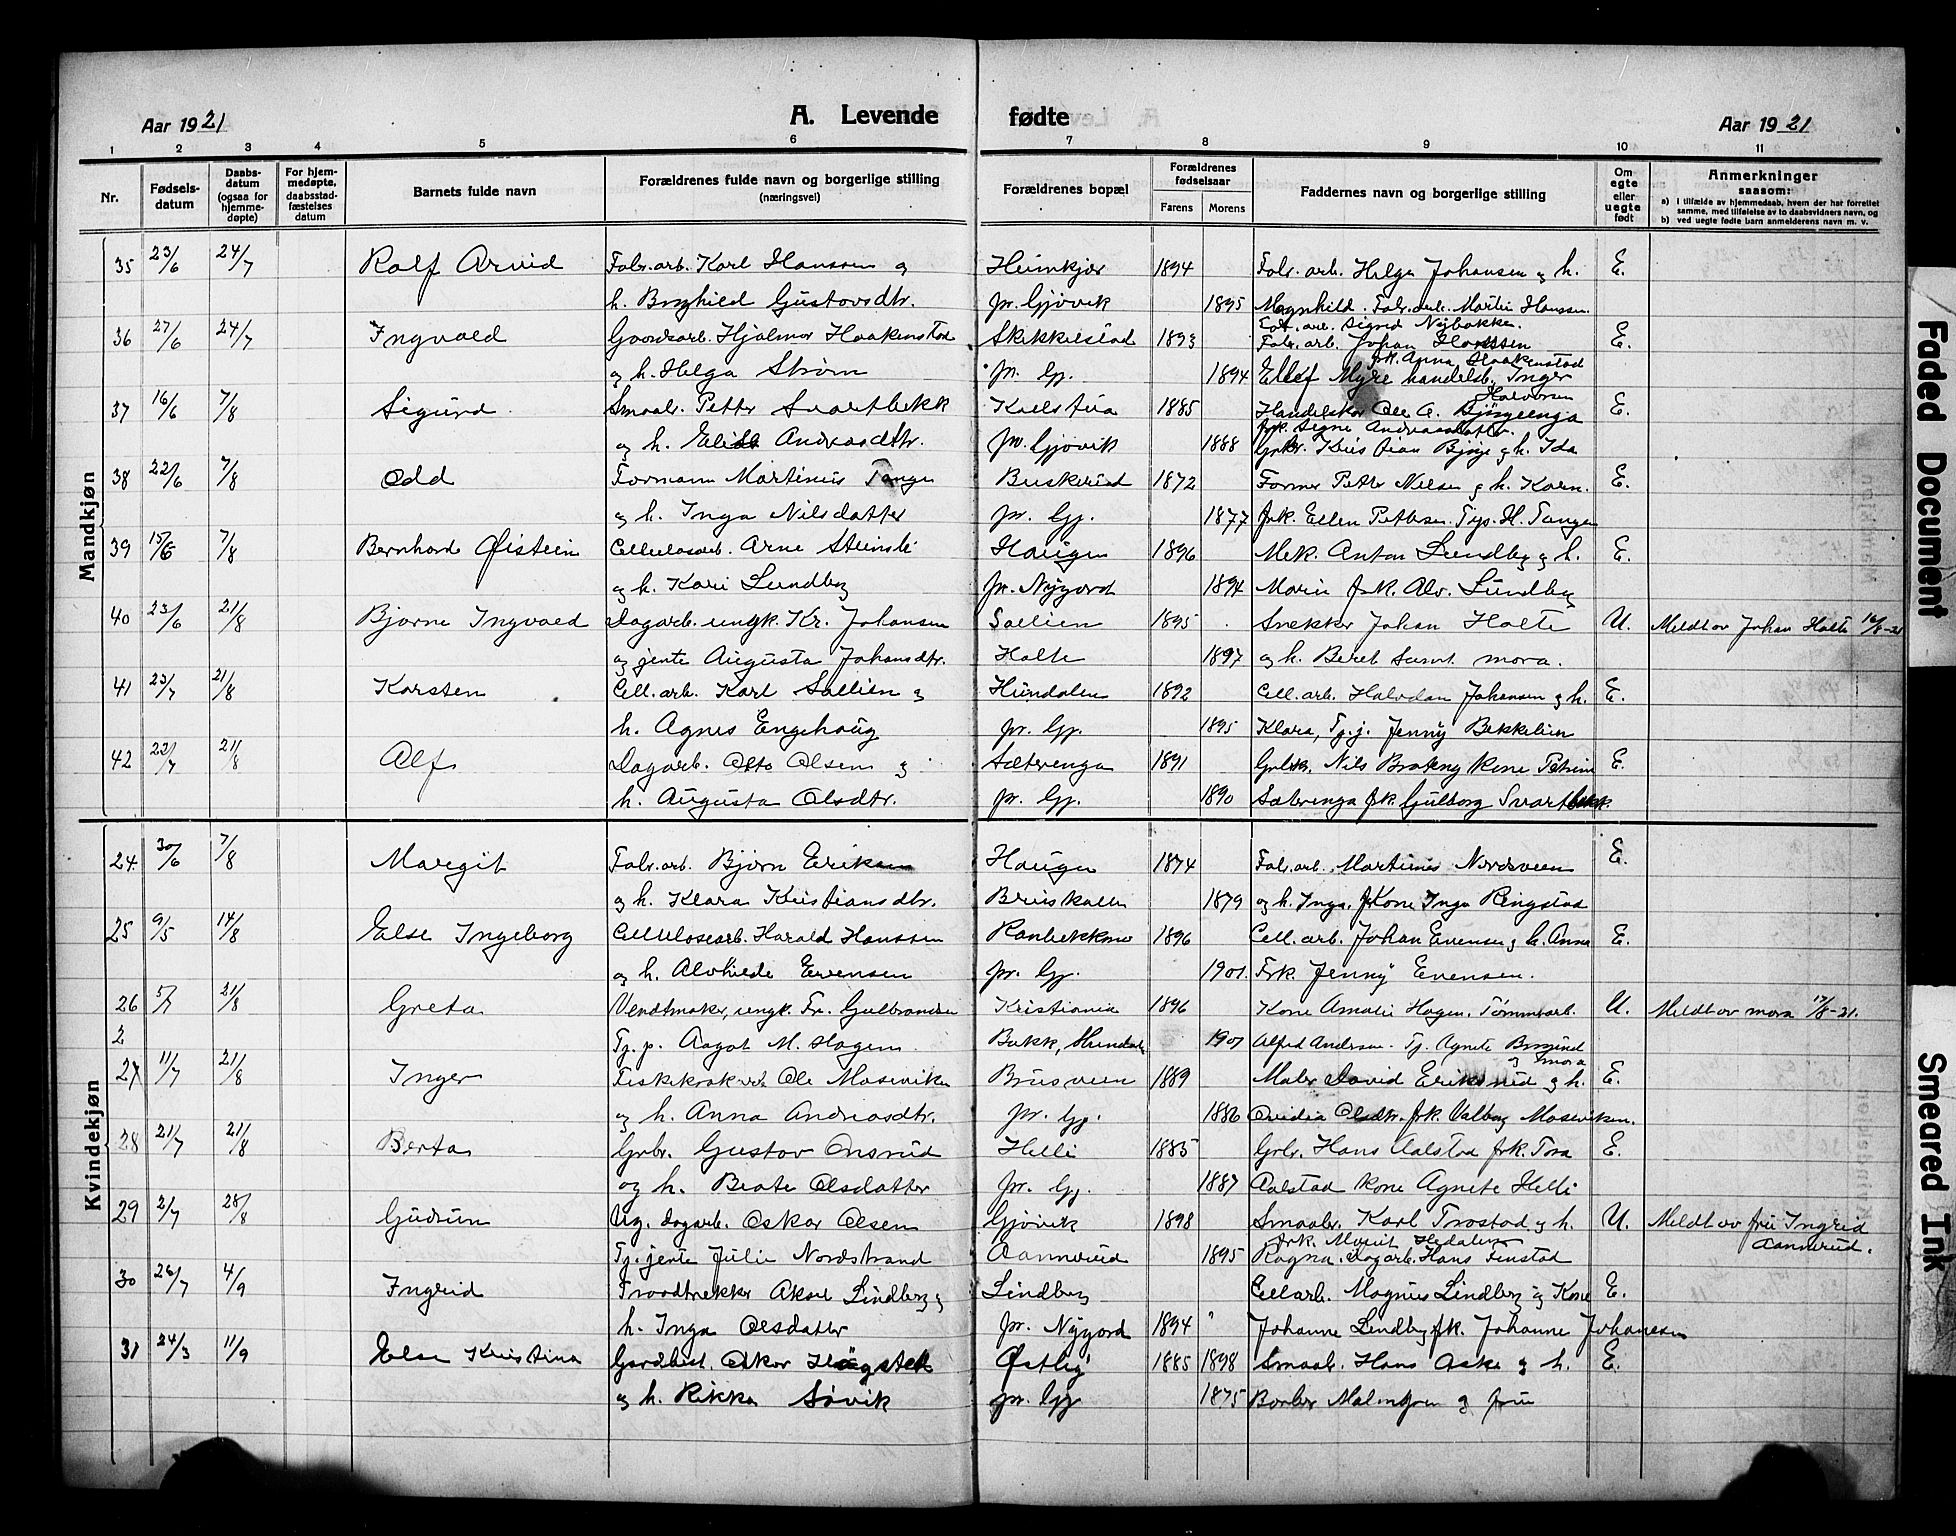 Aar 1921
A. Levende
fødte
Aar 1921
1 2 3 4 5 6 7 8 9 10 11
Nr. Fødselsdatum Daabsdatum (ogsaa for hjemmedøpte) For hjemmedøpte, daabsstadfæstelses datum Barnets fulde navn Forældrenes fulde navn og borgerlige stilling (næringsvei) Forældrenes bopæl Forældrenes fødselsaar Farens Morens Faddernes navn og borgerlige stilling Om egte eller uegte født Anmerkninger saasom:
a) I tilfælde av hjemmedaab, hvem der har forrettet samme, med tilføielse av to daabsvidners navn, og
b) ved uegte fødte barn anmelderens navn m. v.
Mandkjøn
35 23/6 24/7 Rolf Arvid Fabr.arb. Karl Hanssen og Heimkjær 1894 Fabr. arb. Helge Johansen og h. E.
h. Borghild Gustavsdtr. pr. Gjøvik 1895 Magnhild. Fabr.arb. Martin Hanssen.
Sigred Nybakke.
36 27/6 24/7 Ingvald Gaardsarb. Hjalmar Haakenstad Skikkelstad 1893 Fabr. arb. Johan E.
frk. Anna Haakenstad
og h. Helga Strøm pr. Gj. 1894 Ellef Myre handelsb. Inger
Halvorsen
37 16/6 7/8 Sigurd Smaabr. Petter Svartbekk 1885 Ole A. E.
frk. Signe
og h. Andreasdtr. pr. Gjøvik 1888 og h. Ida
38 22/6 7/8 Odd Formann Martinius Tange Buskerud 1872 Former Petter Nilsen og h. Karn. E.
og h. Inga Nilsdatter pr. Gj. 1877 frk. Ellen Pettersen. H. Tangen
39 15/6 7/8 Bernhard Øistein Cellulosearb. Arne Steinsli Haugen 1896 Mek. Anton Lundby og h. E.
og h. Kari Lundby pr. Nygard 1894 Marie frk. Alv. Lundby
40 23/6 21/8 Bjarne Ingvald Dagarb. ungk. Kr. Johansen Sollien 1895 Snekker Johan Holte U. Meldt av Johan Holte 16/8-21
og jente Augusta Johansdtr. Holte 1897 og h. Beret samt mora.
41 23/7 21/8 Karsten Cell. arb. Karl Sollien og Hundalen 1892 Cell. arb. Halvdan Johansen og h. E.
h. Agnes Engehaug pr. Gj. 1895 Klara, Tj.j. Jenny Bekkelien
42 22/7 21/8 Alf Dagarb. Otto Olsen og Sæterenga 1891 Grbr. Nils Brateng kone Petrine E.
h. Augusta Olsdtr. pr. Gj. 1890 Sæterenga frk. Gulborg Svartbekk.
Kvindekjøn
24. 30/6 7/8 Margit Fabr.arb. Bjørn Eriksen Haugen 1874 Fabr.arb. Martinius Nordsveen E.
og h. Klara Kristiansdtr. Bruiskallen 1879 og h. Inga, Kone Inga Ringstad
25 9/5 14/8 Else Ingeborg Cellulosearb. Harald Hanssen Ranbekkmo 1896 Cell. arb. Johan Evensen og h. Anna E.
og h. Alvhilde Evensen pr. Gj. 1901. Frk. Jenny Evensen.
26 5/7 21/8 Greta ungk. Fr. Gulbrandsen Kristiania 1896 Kone Amalie Hagen. Tømmerarb. U. Meldt av mora 17/8-21.
2 Tj. p. Aagot M. Hagen. Bakk, Hundalen 1901 Alfred Andersen. Tj. Agnete
og mora
27 11/7 21/8 Inger Ole Moseviken Brusveen 1889 Maler David Eriksrud og h. E.
og h. Anna Andreasdtr. pr. Gj. 1886 Ovidia Olsdtr. frk. Valborg Moseviken.
28 21/7 21/8 Berta Grbr. Gustav Onsrud Helli 1885 Grbr. Hans Aalstad frk. Tora E.
og h. Beate Olsdatter pr. Gj. 1887 Aalstad kone Agnete Helli
29 2/7 28/8 Gudrun Ug. dagarb. Oskar Olsen Gjøvik 1898 Smaabr. Karl Trostad og h. U. Meldt av fru Ingrid
frk. Marit Hedalen Aannerud.
Tj. jente Julie Nordstrand Aannerud 1895 Ragna. Dagarb. Hans Finstad
30 26/7 4/9 Ingrid Traadtrekker Aksel Lindberg og Lindberg Cell.arb. Magnus Lindberg og Kone E.
h. Inga Olsdatter pr. Nygard 1894 Johanne Lindberg frk. Johanne Johansen
31 24/3 11/9 Else Kristina Gardbest. Oskar Østby 1885 1898 Smaabr. Hans Aske og h. E.
og h. Rikka Søvik pr. Gj. 1875 Barber Malmgren og frue
Faded Document
Smeared Ink